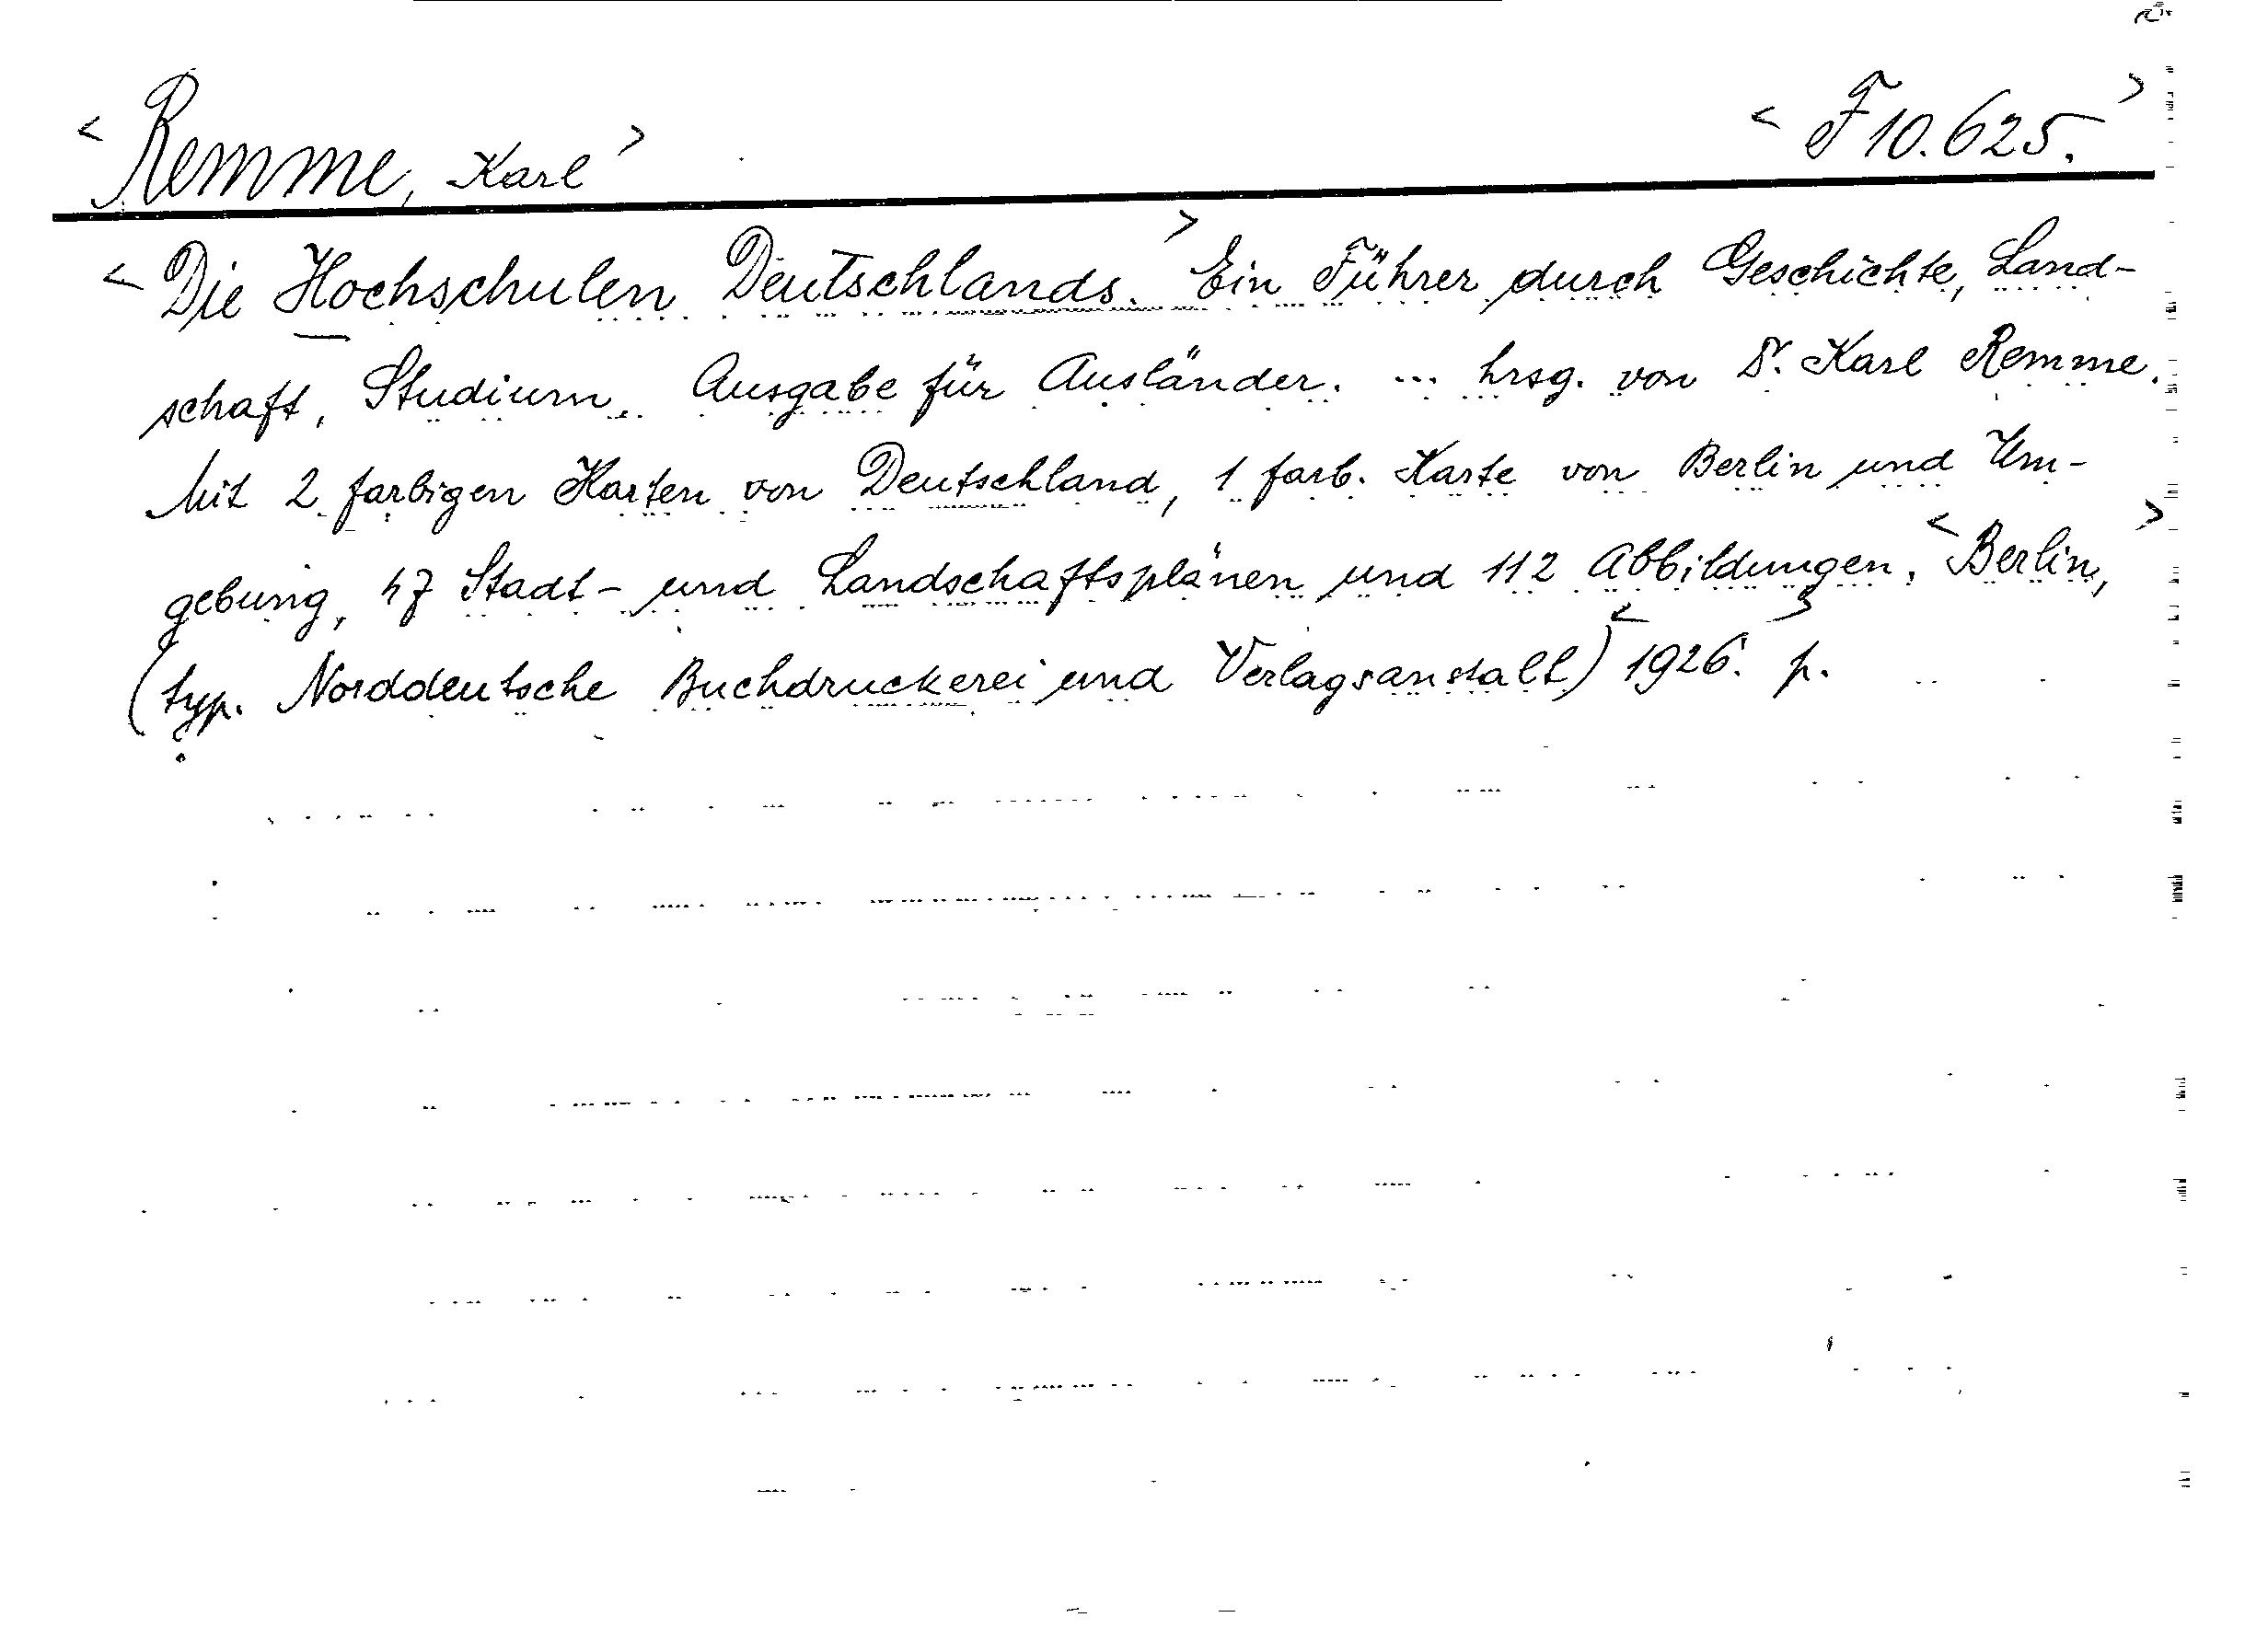 <Remme, Karl> <F 10.625.>
<Die Hochschulen Deutschlands.> Ein Führer durch Geschichte, Land-
schaft, Studium. Ausgabe für Ausländer. ... hrsg. von Dr. Karl Remme.
Mit 2 farbigen Karten von Deutschland, 1 farb. Karte von Berlin und Um-
gebung, 47 Stadt- und Landschaftsplänen und 112 Abbildungen. <Berlin,>
(typ. Norddeutsche Buchdruckerei und Verlagsanstalt) <1926.> p.